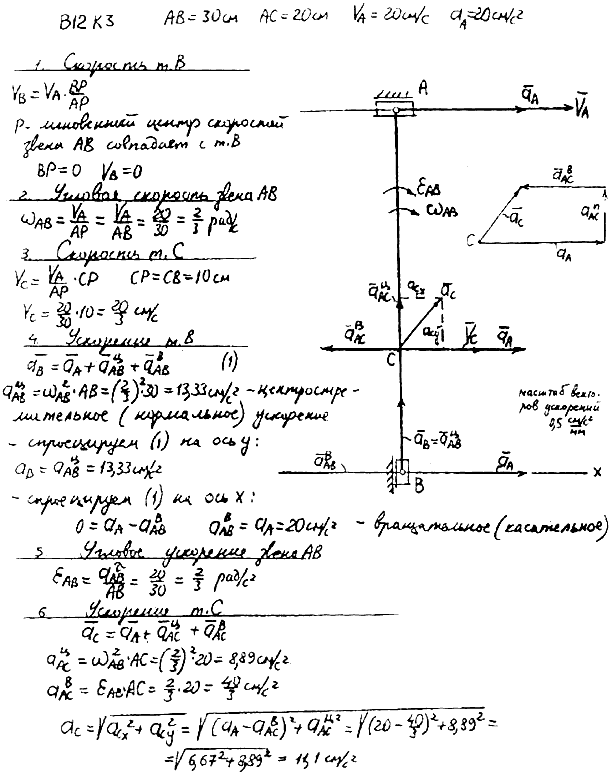 В12 К3 AB=30см AC=20см V̄A=20см/с aA=20см/с²
1. Скорость т.В
VB = VA·BP/AP
P- мгновенный центр скоростей
звена АВ совпадает с т.В
BP=0 VB=0
2. Угловая скорость звена АВ
ωAB = VA/AP = VA/AB = 20/30 = 2/3 рад/с
3. Скорость т.С
VC = VA/AP · CP CP=CB=10см
VC = 20/30·10 = 20/3 см/с
4. Ускорение т.В
āB = āA + āᵸAB + āᴮAB (1)
aᵸAB = ω²AB·AB = (2/3)²·30 = 13,33см/с² - центростре-
мительное (нормальное) ускорение
- спроецируем (1) на ось y:
aB = aᵸAB = 13,33см/с²
- спроецируем (1) на ось x:
0 = aA - aᴮAB aᴮAB = aA = 20см/с² - вращательное (касательное)
5. Угловое ускорение звена АВ
εAB = aᵗAB/AB = 20/30 = 2/3 рад/с²
6. Ускорение т.С
āC = āA + āᵸAC + āᴮAC
aᵸAC = ω²AB·AC = (2/3)²·20 = 8,89см/с²
aᴮAC = εAB·AC = 2/3·20 = 40/3 см/с²
aC = √(aCx² + aCy²) = √((aA - aᴮAC)² + aᵸAC²) = √((20 - 40/3)² + 8,89²) =
= √(6,67² + 8,89²) = 11,1 см/с²
A
āA
V̄A
εAB
ωAB
āᴮAC
āC
āⁿAC
C
aA
āᵸAC
aCx
āC
āᴮAC
aCy
V̄C
āA
C
масштаб векто-
ров ускорений
0,5 см/с²/мм
āB=āᵸAB
āᴮAB
āA
x
B